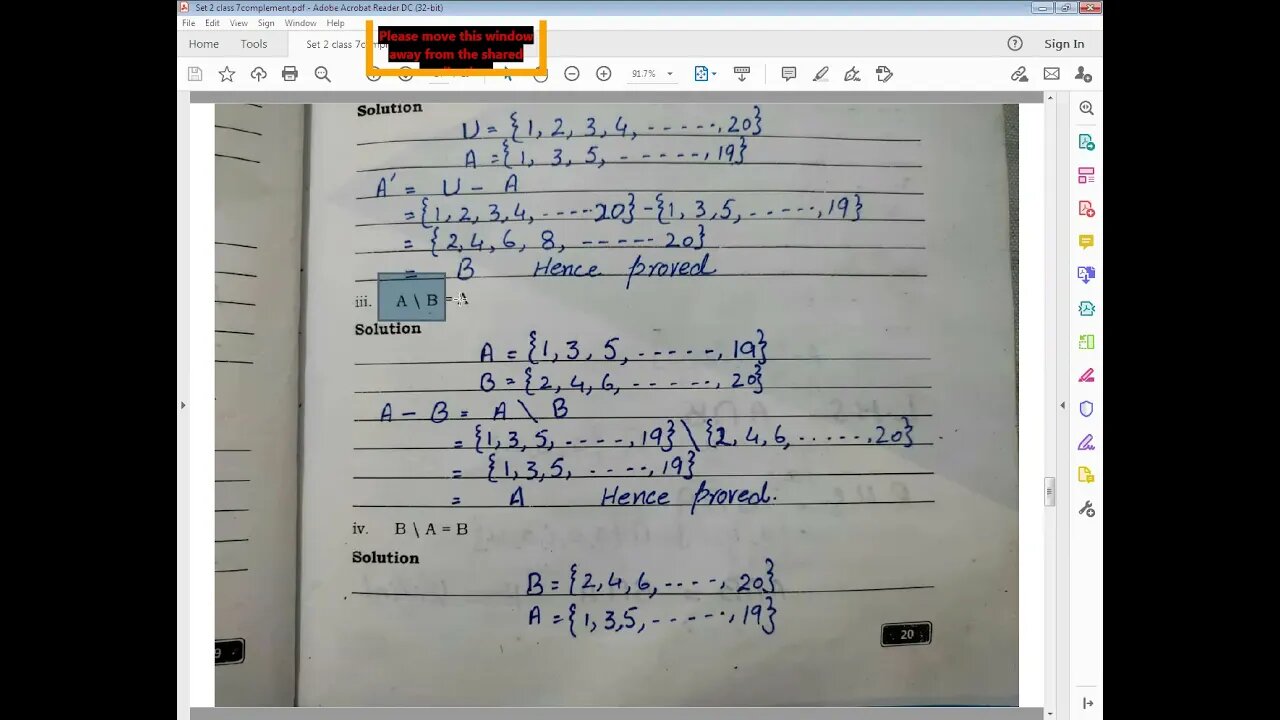 Set 2 class 7complement.pdf - Adobe Acrobat Reader DC (32-bit)
File Edit View Sign Window Help
Home Tools Set 2 class 7compl
Sign In
Please move this window
away from the shared
91.7%
Solution
U = {1, 2, 3, 4, -----, 20}
A = {1, 3, 5, ------, 19}
A' = U - A
= {1, 2, 3, 4, -----20} - {1, 3, 5, ------, 19}
= {2, 4, 6, 8, ------ 20}
= B Hence proved
iii. A \ B = A
Solution
A = {1, 3, 5, ------, 19}
B = {2, 4, 6, ------, 20}
A - B = A \ B
= {1, 3, 5, -----, 19} \ {2, 4, 6, ------, 20}
= {1, 3, 5, -----, 19}
= A Hence proved.
iv. B \ A = B
Solution
B = {2, 4, 6, ----, 20}
A = {1, 3, 5, ------, 19}
20
9